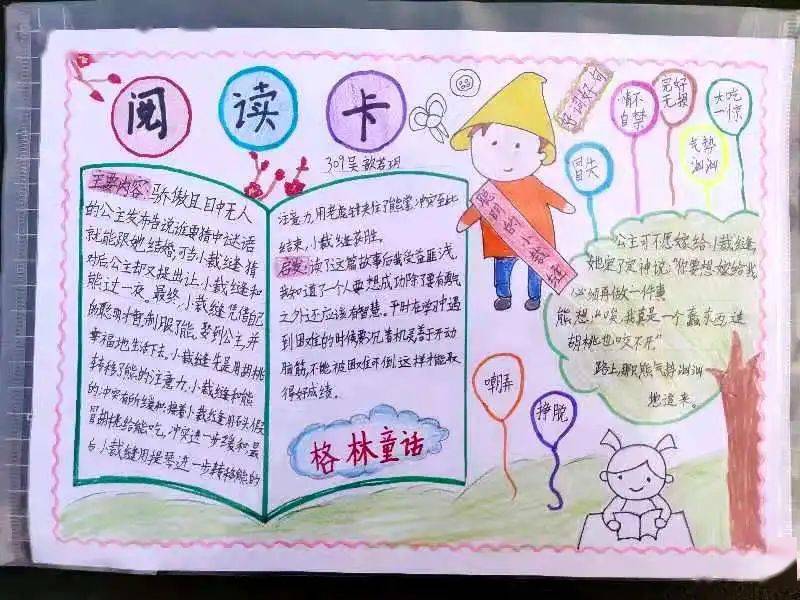 阅读卡
309吴歆若玥
主要内容:骄傲且目中无人
的公主发布告说谁要猜中谜语
就能跟她结婚,可当小裁缝猜
对后公主却又提出让小裁缝和
熊过一夜。最终,小裁缝凭借自己
的聪明才智制服了熊,娶到公主,并
幸福地生活下去。小裁缝先是用胡桃
转移了熊的注意力,小裁缝和熊
的冲突有所缓和,接着小裁缝用石头假
冒胡桃给熊吃,冲突进一步缓和,最
后小裁缝用提琴进一步转移熊的
注意力,用老虎钳夹住了熊掌,冲突至此
结束,小裁缝获胜。
启发:读了这篇故事后我受益匪浅,
我知道了一个人要想成功除了要有勇气
之外还应该有智慧。平时在学习中遇
到困难的时候要沉着机灵善于开动
脑筋,不能被困难吓倒,这样才能取
得好成绩。
格林童话
聪明的小裁缝
好词好句
冒失
情不
自禁
完好
无损
气势
汹汹
大吃
一惊
嘲弄
挣脱
公主可不愿嫁给小裁缝,
她定了定神说:“你要想嫁给我
必须再做一件事
熊想:“唉,我真是一个蠢东西,连
胡桃也咬不开”
路上那只熊气势汹汹
地追来。